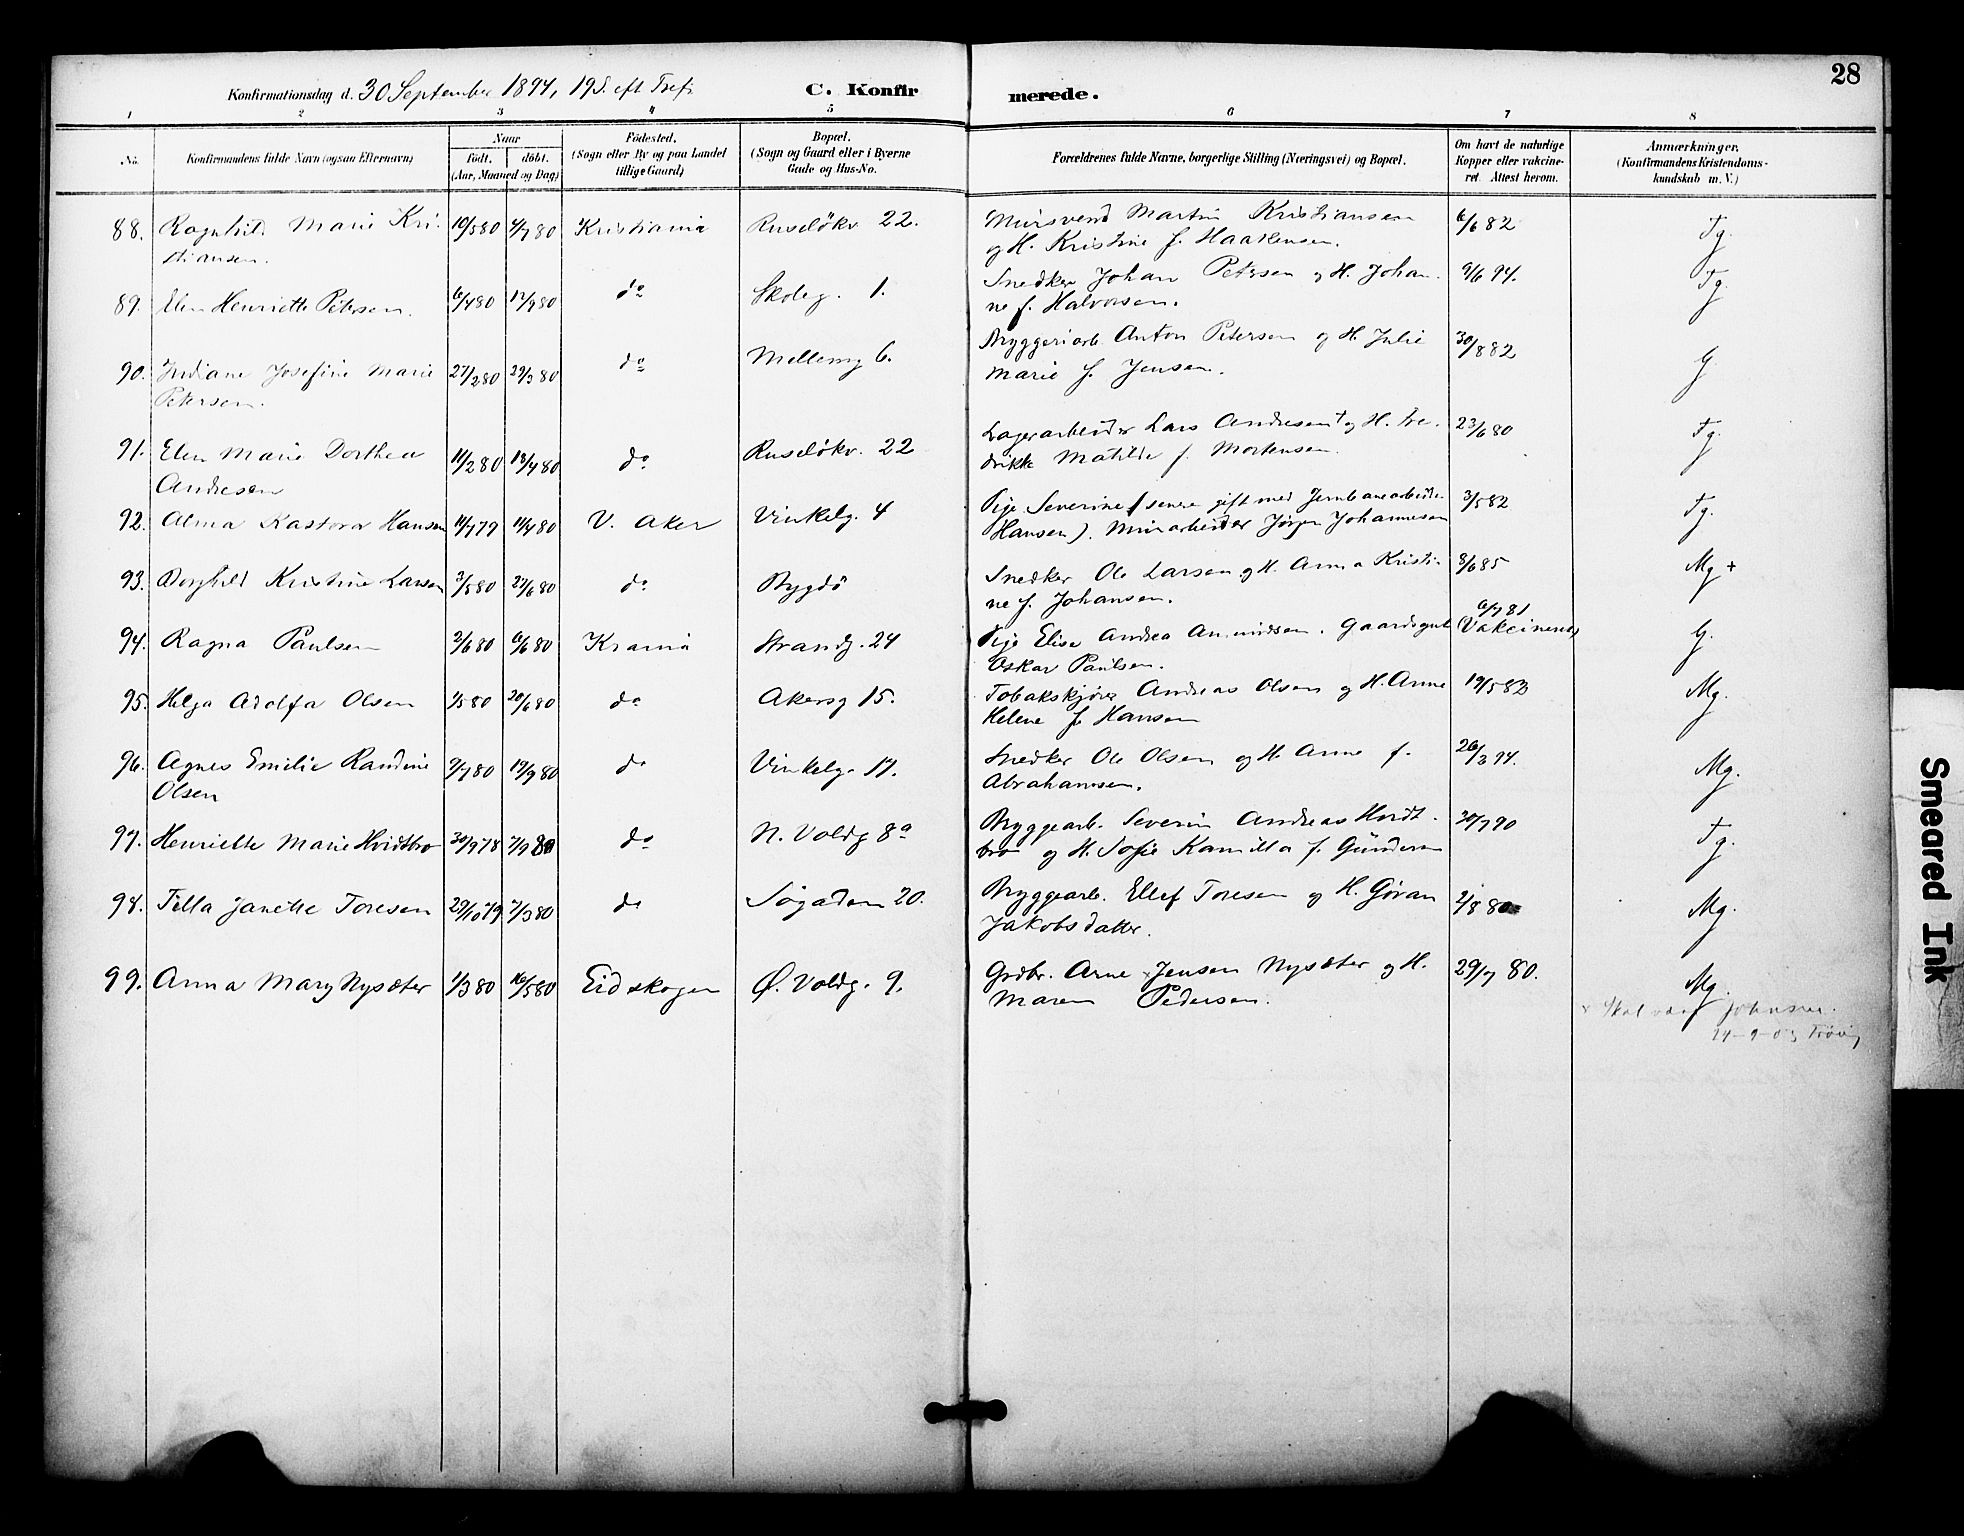 28
Konfirmationsdag d. 30 September 1894, 19 S. eft Tref.
C. Konfirmerede.
1 2 3 4 5 6 7 8
No.
Konfirmandens fulde Navn (ogsaa Efternavn)
Naar
født. døbt.
(Aar, Maaned og Dag)
Fødested.
(Sogn eller By og paa Landet
tillige Gaard)
Bopæl.
(Sogn og Gaard eller i Byerne
Gade og Hus-No.
Forældrenes fulde Navne, borgerlige Stilling (Næringsvei) og Bopæl.
Om havt de naturlige
Kopper eller vakcine-
ret. Attest herom.
Anmærkninger.
(Konfirmandens Kristendoms-
kundskab m. V.)
88. Ragnhild Marie Kri- 10/5 80 4/7 80 Kristiania Ruseløkv. 22. Mursvend Martin Kristiansen 6/6 82 Tg.
stiansen. og H. Kristine f. Haakensen.
89. Elen Henriette Petersen. 6/4 80 12/9 80 do Skoleg. 1. Snedker Johan Petersen og H. Johan- 9/6 94. Tg.
ne f. Halvorsen.
90. Indiane Josefine Marie 27/2 80 29/3 80 do Mellemg 6. Bryggeriarb. Anton Petersen og H. Julie 30/8 82 G.
Petersen. Marie f. Jensen.
91. Elen Marie Dorthea 11/2 80 18/4 80 do Ruseløkv. 22 Lagerarbeider Lars Andresen † og H. Fre- 23/6 80 Tg.
Andresen drikke Matilde f. Mortensen.
92. Alma Kastora Hansen 11/7 79 11/4 80 V. Aker Vinkelg. 4 Pige Severine (senere gift med Jernbanearbeider 3/5 82 Tg.
Hansen). Murarbeider Jørgen Johannesen
93. Borghild Kristine Larsen 3/5 80 27/6 80 do Bygdø Snedker Ole Larsen og H. Anna Kristi- 8/6 85 Mg +
ne f. Johansen.
94. Ragna Paulsen 2/6 80 6/6 80 Krania Strandg. 24 Pige Elise Andrea Anmundsen. Gaardsgut 6/7 81 (Vakcineret) G.
Oskar Paulsen.
95. Helga Adolfa Olsen 1/5 80 20/6 80 do Akersg 15. Tobakskjører Andreas Olsen og H. Anne 19/5 82 Mg.
Helene f. Hansen
96. Agnes Emilie Randine 9/7 80 19/9 80 do Vinkelg. 17. Snedker Ole Olsen og H. Anne f. 26/3 94. Mg.
Olsen Abrahamsen.
97. Henriette Marie Hvidtbro 30/9 78 7/9 80 do N. Voldg 8a Bryggearb. Severin Andreas Hvidt- 30/7 90 Tg.
bro og H. Sofie Kamilla f. Gundersen
98. Tilla Janette Toresen 29/10 79 7/3 80 do Søgaden 20. Bryggearb. Ellef Toresen og H. Gøran 2/8 80 Mg.
Jakobsdatter.
99. Anna Mary Nysæter 1/3 80 16/5 80 Eidskogen Ø. Voldg. 9. Grdbr. Arne Jensen Nysæter og H. 29/7 80. Mg.
Maren Pedersen.
× Skal være Johnsen.
24-9-03
Smeared Ink